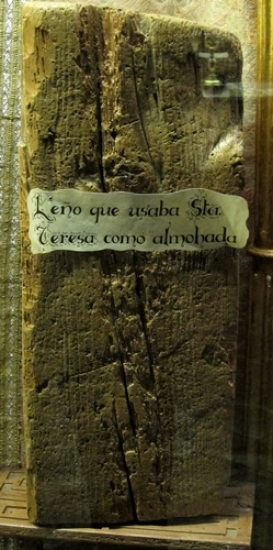 Leño que usaba Sta.
Teresa como almohada